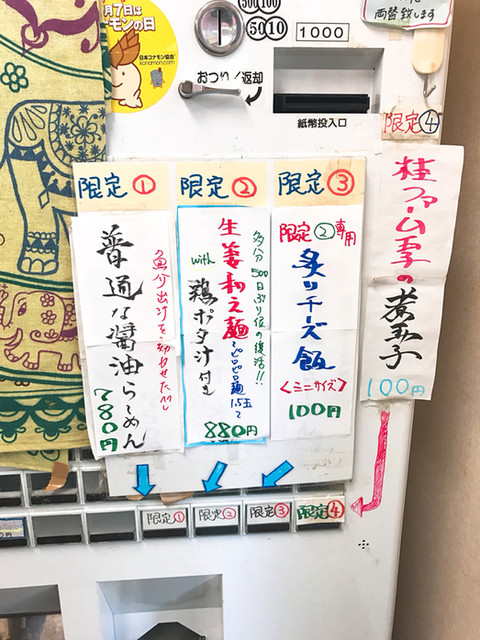 月7日は
モンの日
日本コナモン協会
konamon.com
500 100
50 10
1000
両替致します
おつり
返却
紙幣投入口
限定④
限定①
普通な醤油らーめん
780円
限定②
多分500日ぶり位の復活!!
生姜和え麺
ピロピロ麺1.5玉
with
鶏ポタ汁付き
880円
限定③
限定②専用
炙りチーズ飯
<ミニサイズ>
100円
煮玉子
100円
限定①
限定②
限定③
限定④